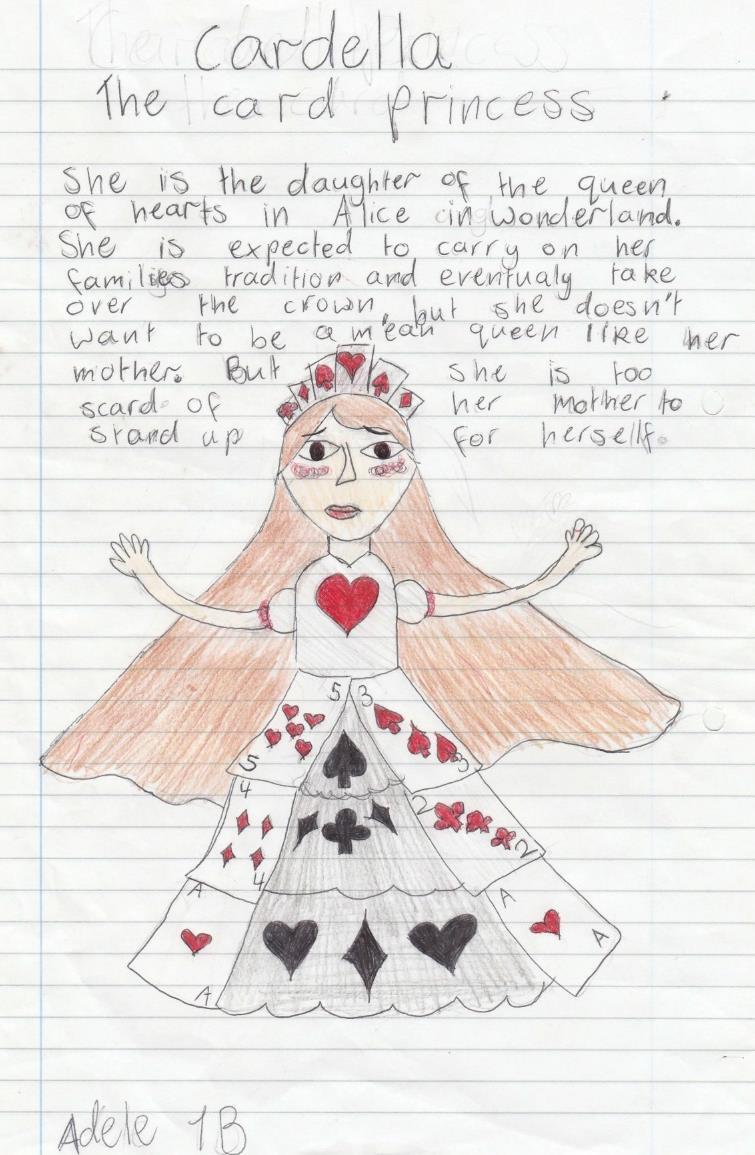 Cardella
The card princess
She is the daughter of the queen
of hearts in Alice in wonderland.
She is expected to carry on her
families tradition and eventualy take
over the crown, but she doesn't
want to be a mean queen like her
mother. But she is too
scard of her mother to
stand up for herself.
5 3
5 3
4 2
4 2
A A
A A
Adele 1B